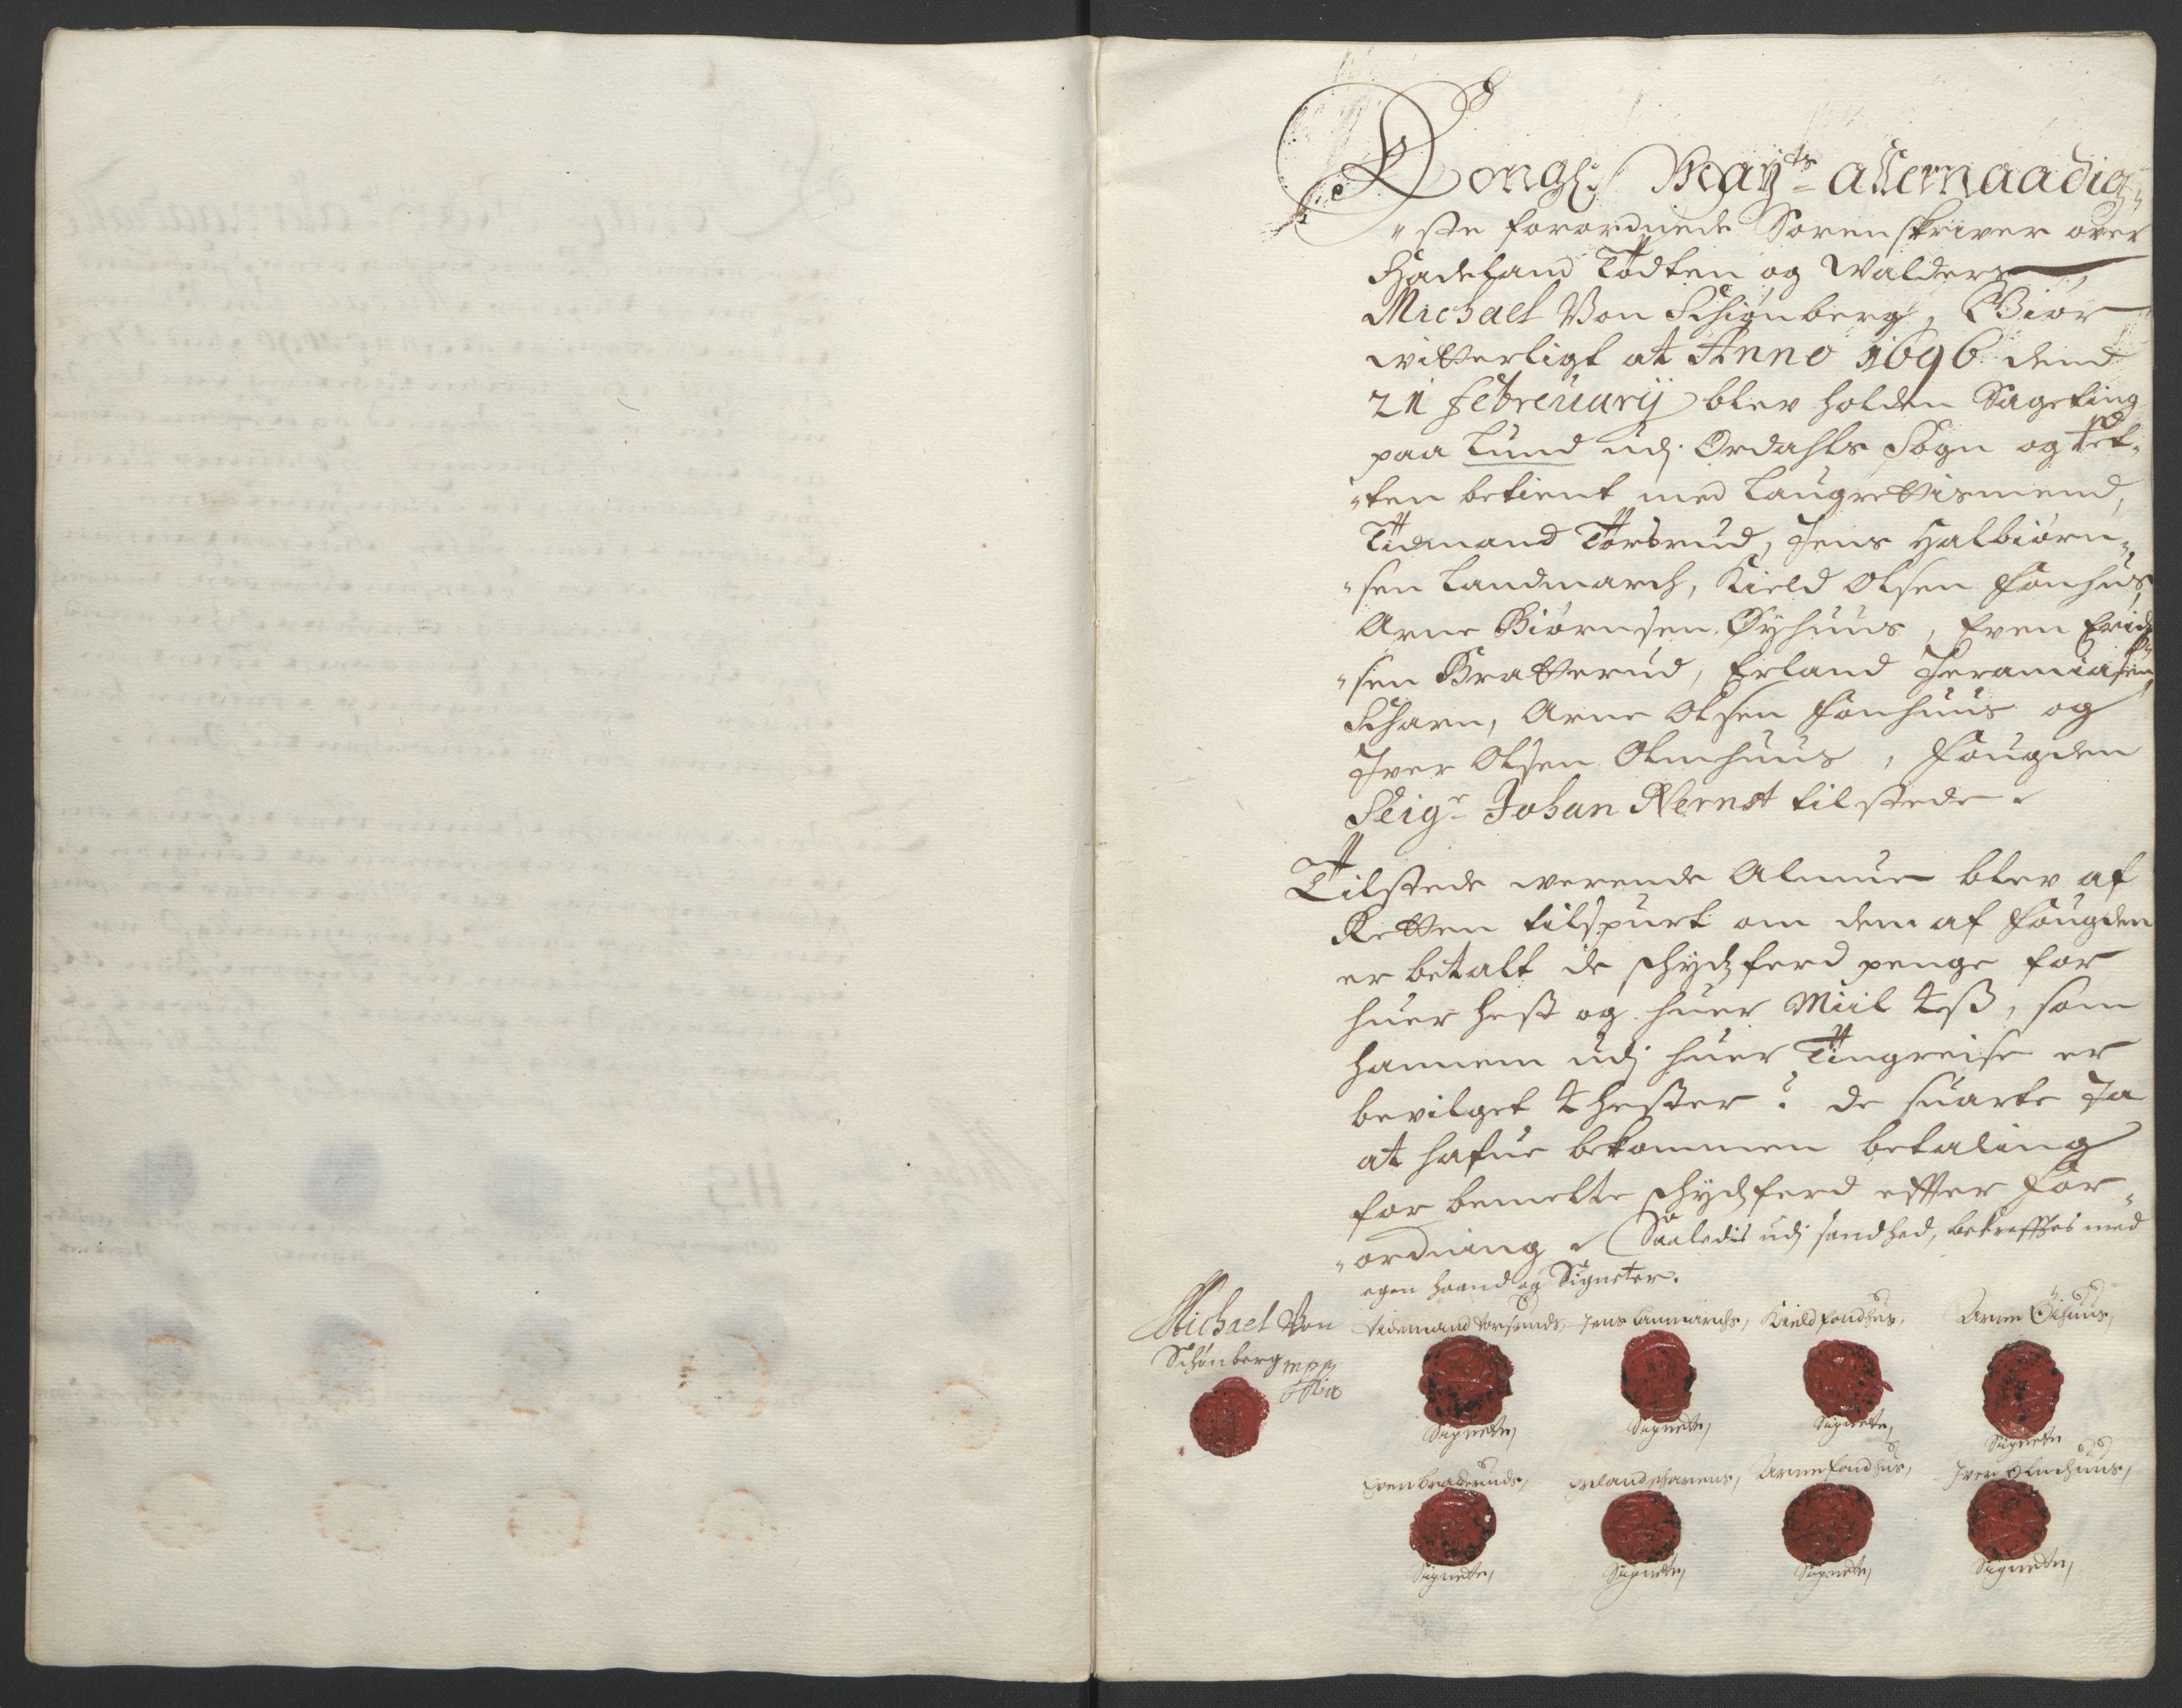 Kongl: Mayts allernaadig-
"ste forordnede Sorenskriver over
Hadeland Todten og Walders,
Michael Von Schiønberg, Giør
witterligt at Anno 1696 dend
21 febreuarij blev holden Sageting
paa Lund udj Ordahls Sogn og Ret-
"ten betient med Laugrettismend,
Tidmand Torsrud, Jens Halbiørn-
"sen Landmarch, Kield Olsen Fonhus,
Arne Biørnsen Øyhuus, Even Erich-
"sen Bratterud, Erland Jeramiasen
Scharn, Arne Olsen Fonhuus og
Iver Olsen Olmhuus, Fougden
Seigr Johan Rernst tilstede.
Tilstede werende Almue blev af
Retten tilspurt om dem af Fougden
er betalt de schydzferd penge for
huer hest og huer Miil 4 ß, som
hannem udj huer Tingreise er
bevilget 4 hester? de suarte Ja
at hafue bekommen betaling
for bemelte schydzferd effter For-
"ordning. Saaledis udj sandhed, bekrefftes med
egen haand og Signeter.
Michael Von
Schønberg mpp
Tidemand Torsruds, Jens Lanmarchs, Kield Fondhus, Arne Øihuus,
Signete, Signete, Signete, Signete
Even Braderuds, Erland Scharens, Arne Fondhus, Iver Olmhuus,
Signete, Signete, Signete, Signete,